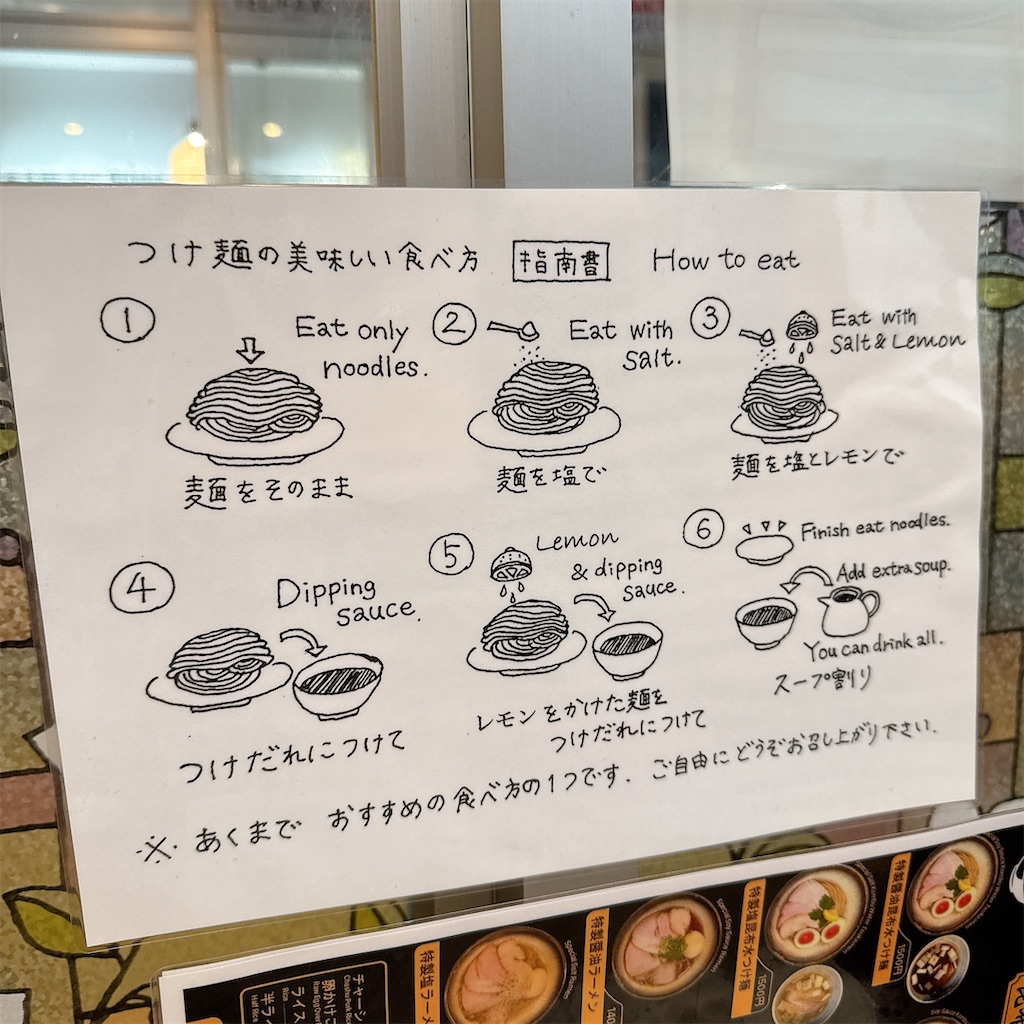 つけ麺の美味しい食べ方 指南書 How to eat
① Eat only
noodles.
麺をそのまま
② Eat with
salt.
麺を塩で
③ Eat with
Salt & Lemon
麺を塩とレモンで
④ Dipping
sauce.
つけだれにつけて
⑤ Lemon
& dipping
sauce.
レモンをかけた麺を
つけだれにつけて
⑥ Finish eat noodles.
Add extra soup.
You can drink all.
スープ割り
※ あくまで おすすめの食べ方の1つです. ご自由にどうぞお召し上がり下さい.
チャーシ
Chashu Pork Rice
卵かけご
Raw Egg Over
ライス
Rice
半ライ
Half Rice
特製塩ラーメ
Special Salt Ramen
特製醤油ラーメン
Special Soy Sauce Ramen
特製塩昆布水つけ麺
1500円
特製醤油昆布水つけ麺
1500円